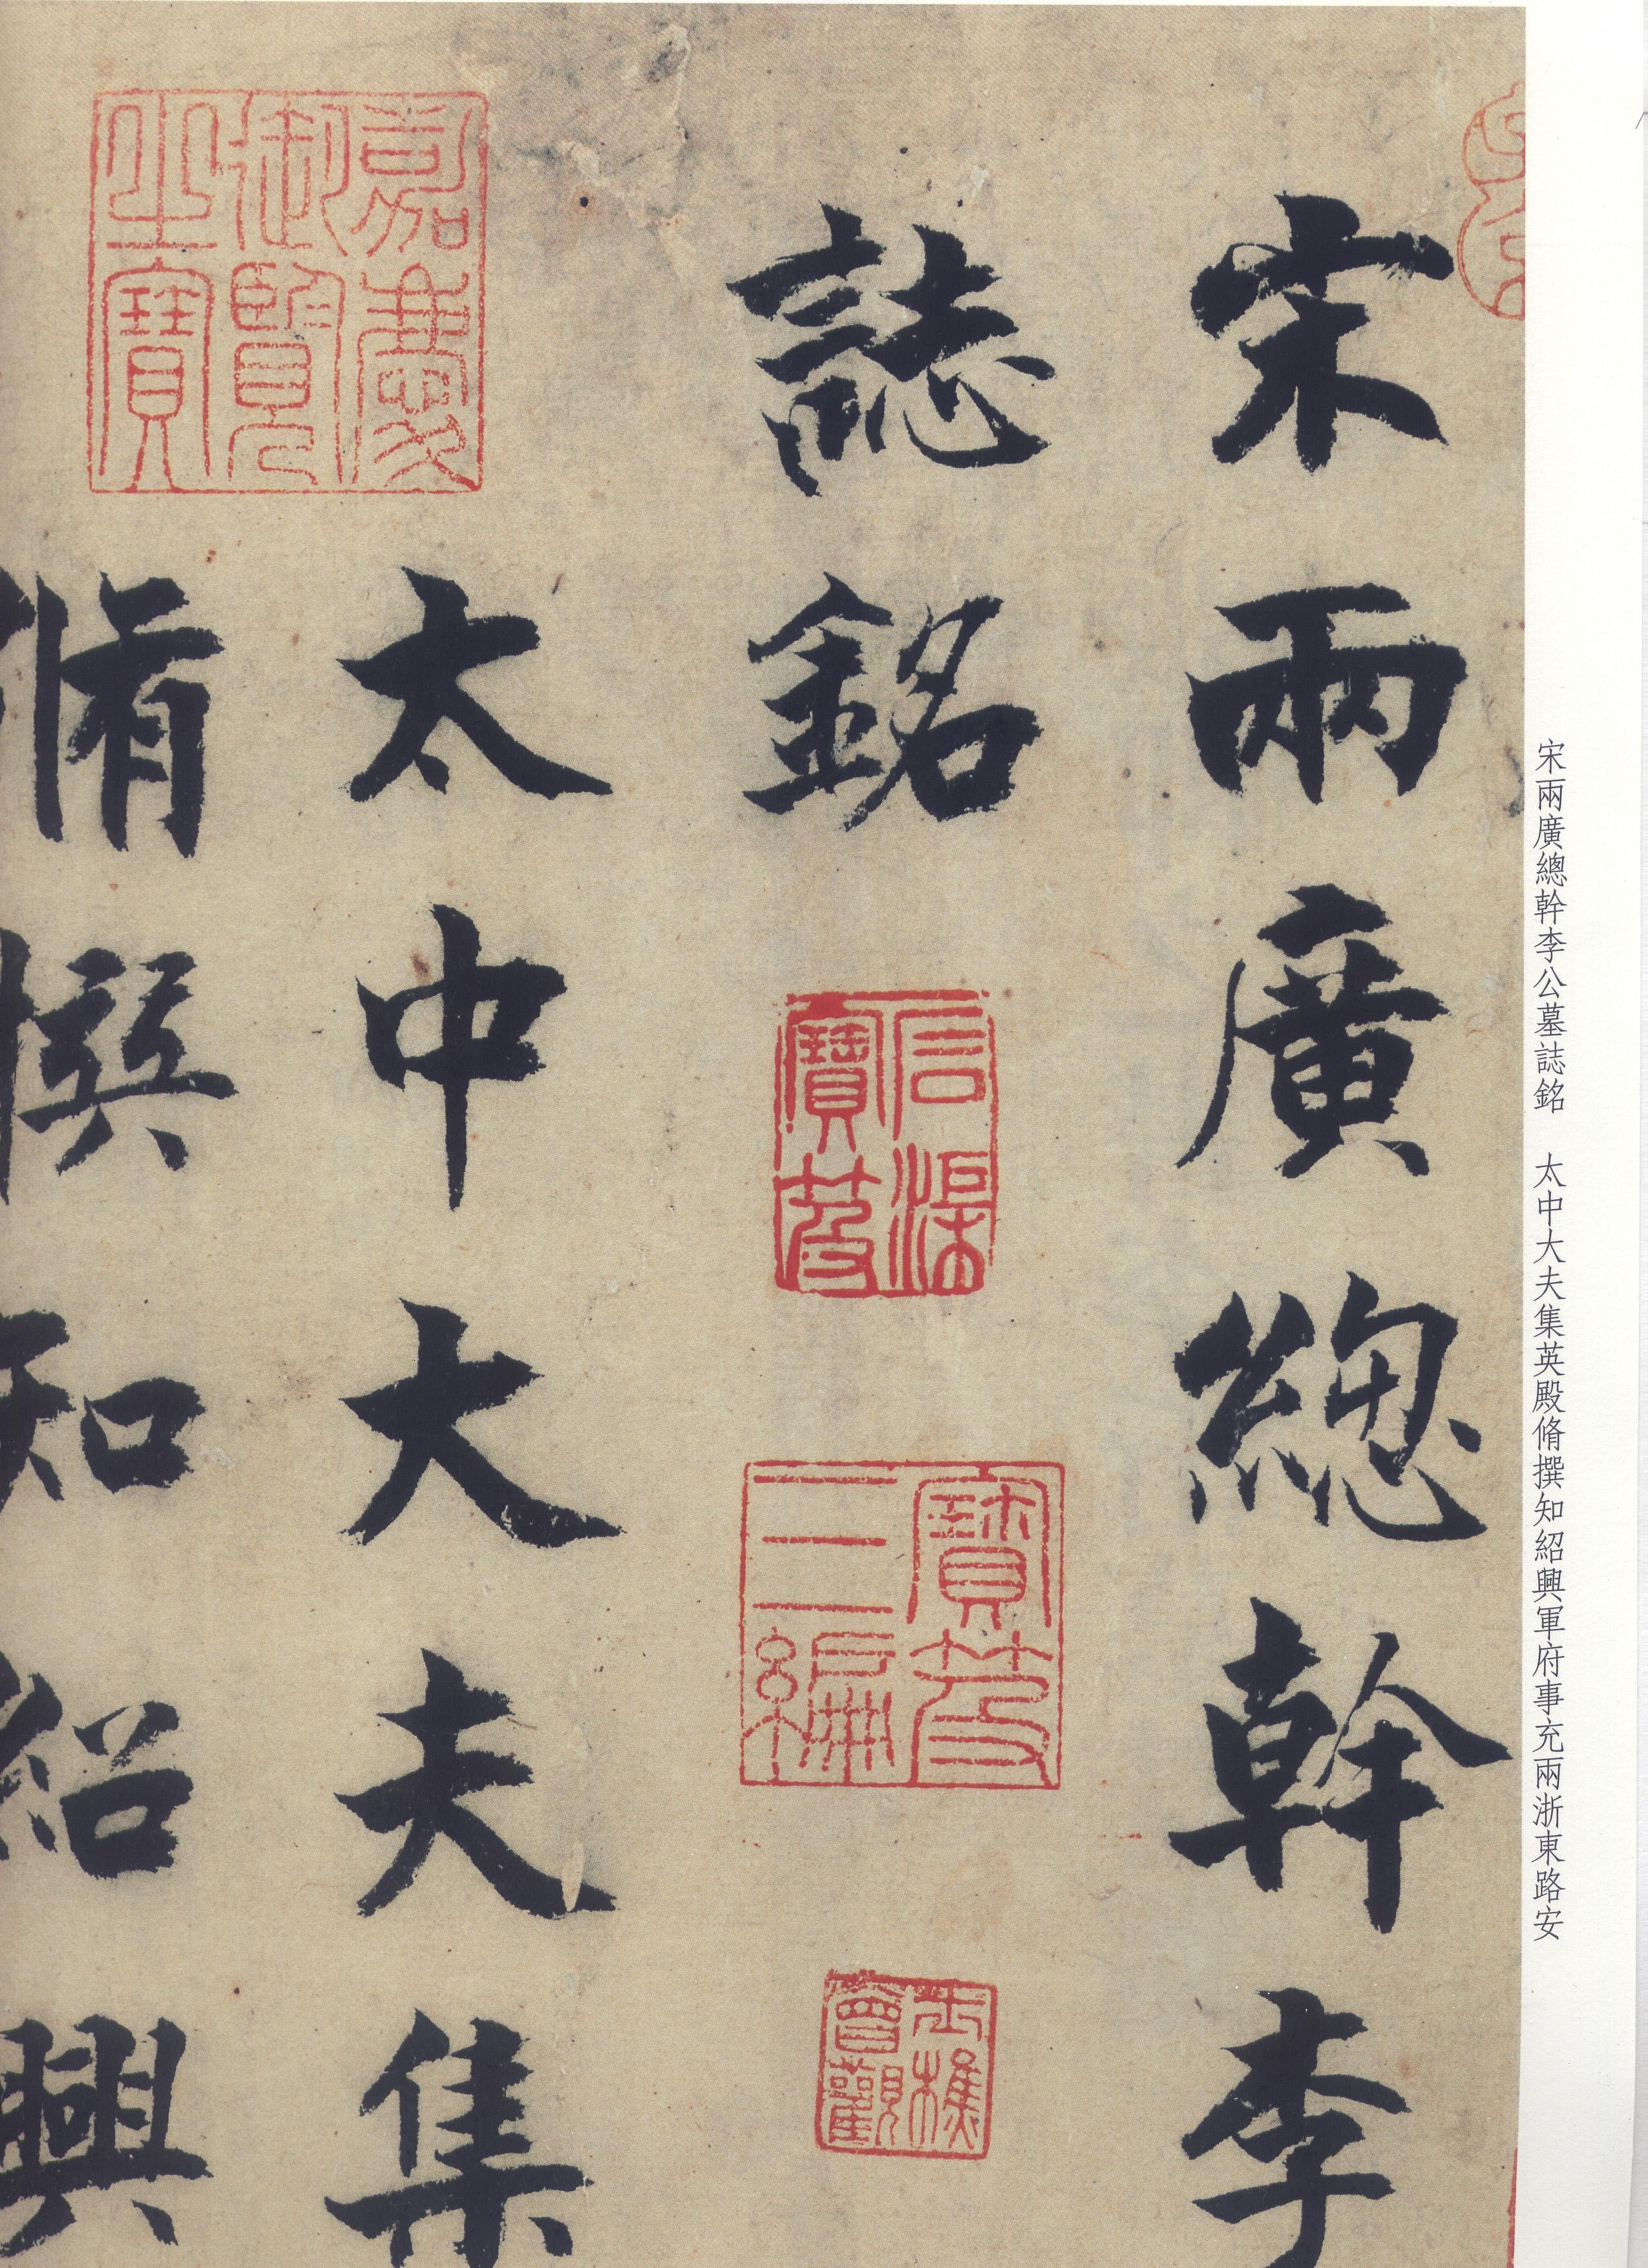 宋兩廣總幹李
誌銘
太中大夫集
脩撰知紹興
嘉慶御覽之寶
信溪寶笈
寶笈三編
曾觀
宋兩廣總幹李公墓誌銘　太中大夫集英殿脩撰知紹興軍府事充兩浙東路安